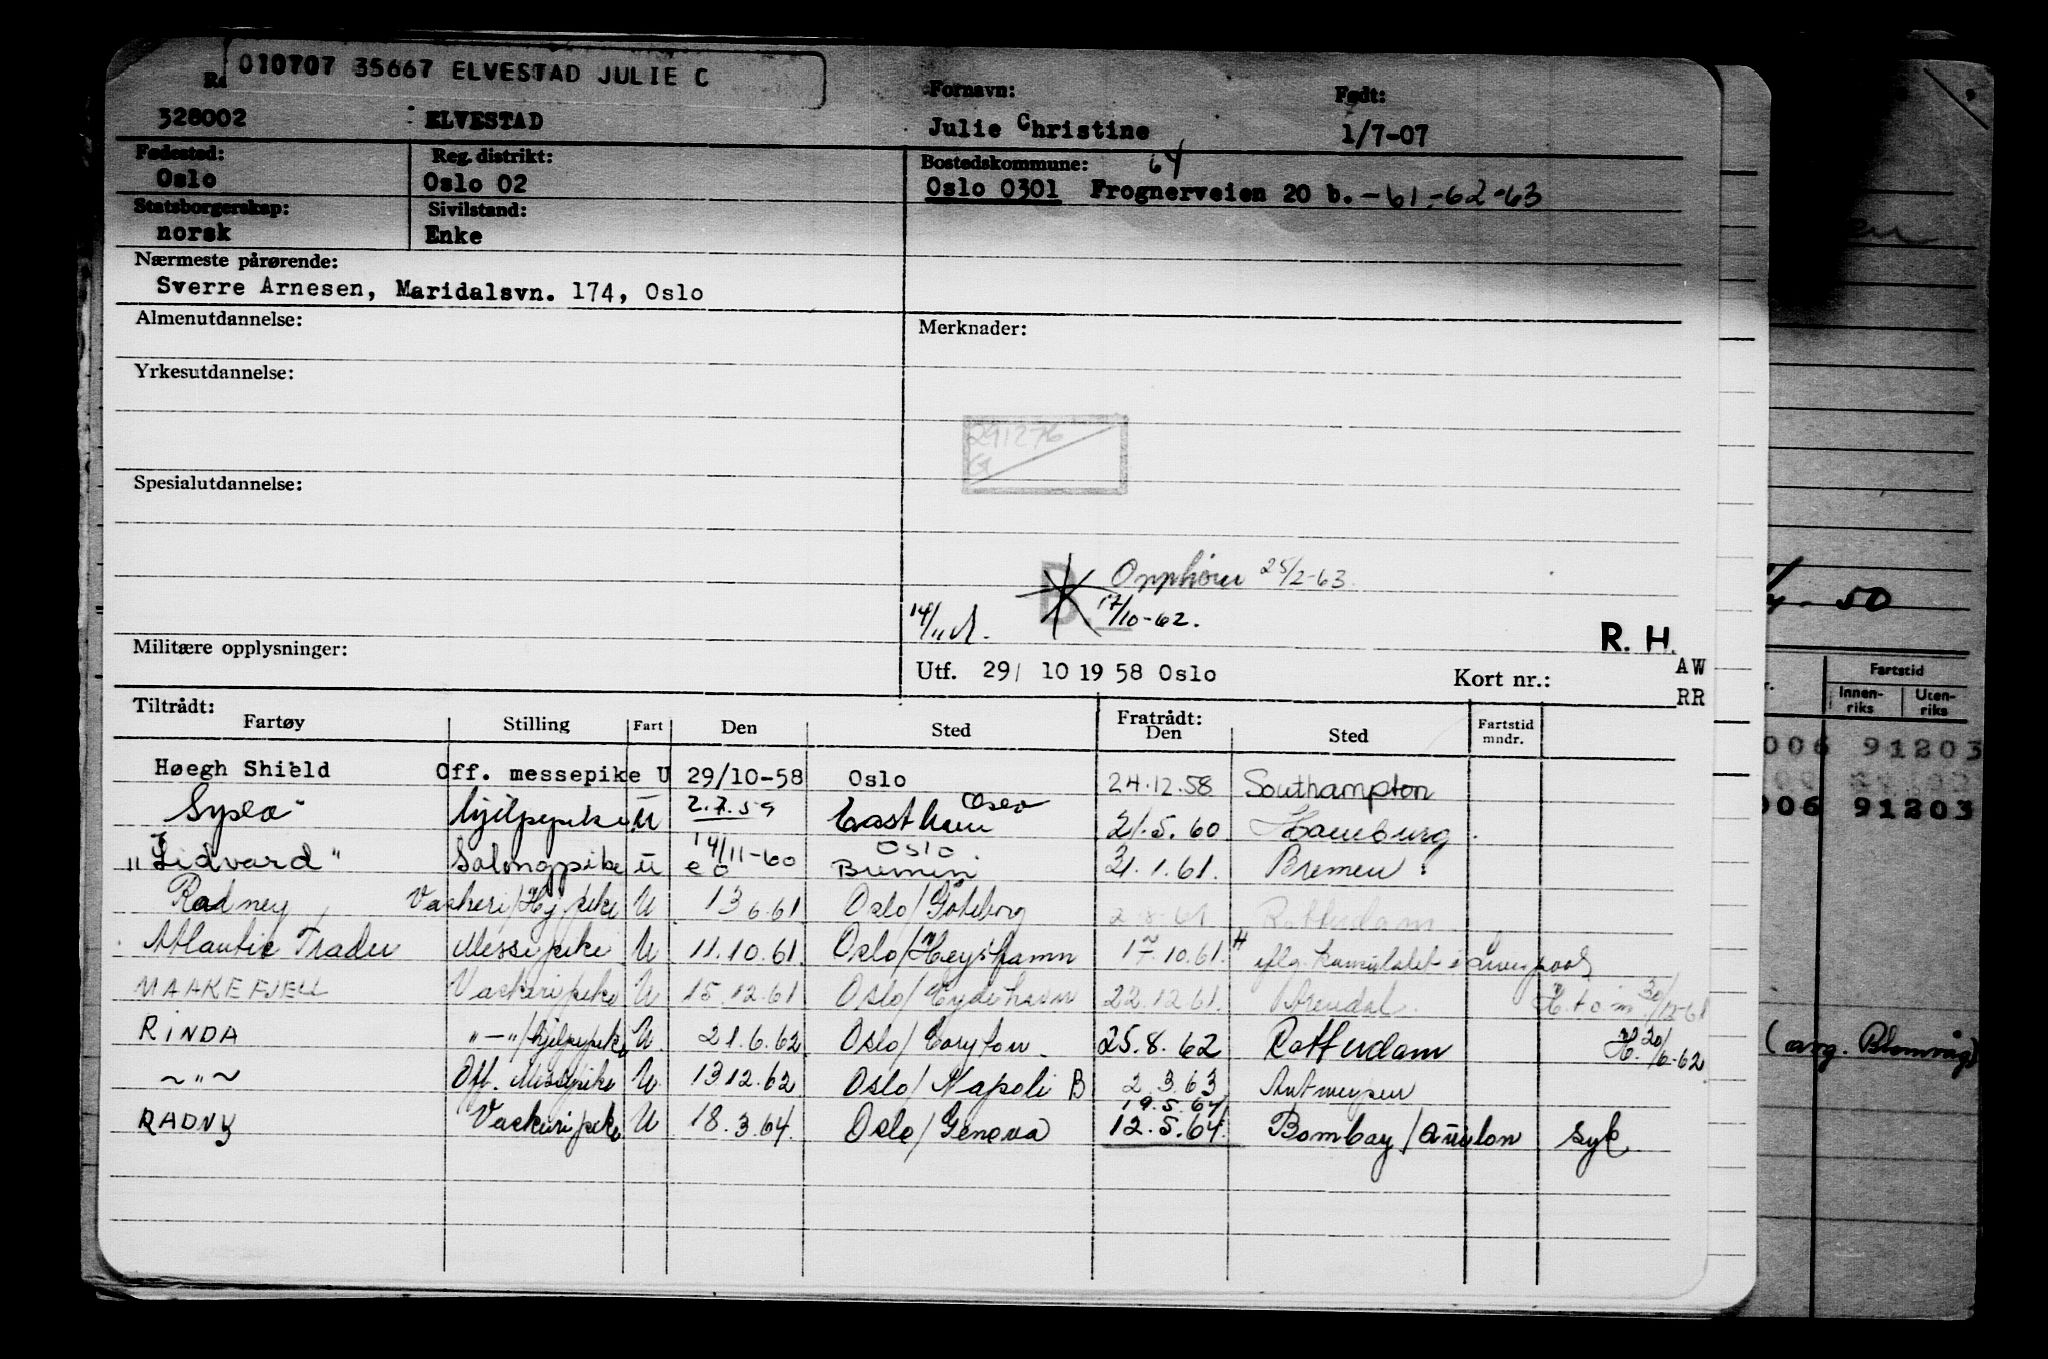 010707 35667 ELVESTAD JULIE C
Fornavn: Født:
328002 ELVESTAD Julie Christine 1/7-07
Fødested: Reg. distrikt: Bostedskommune: 64
Oslo Oslo 02 Oslo 0301 Frognerveien 20 b. -61-62-63
Statsborgerskap: Sivilstand:
norsk Enke
Nærmeste pårørende:
Sverre Arnesen, Maridalsvn. 174, Oslo
Almenutdannelse: Merknader:
Yrkesutdannelse:
291276
G
Spesialutdannelse:
Opphører 25/2-63
14/11 B 17/10-62.
Militære opplysninger: R. H.
Utf. 29/ 10 19 58 Oslo Kort nr.: AW
RR
Tiltrådt: Fratrådt:
Fartøy Stilling Fart Den Sted Den Sted Fartstid mndr.
Høegh Shield Off. messepike U 29/10-58 Oslo 24.12.58 Southampton
Oslo
hjelpepike U 2.7.59 Eastham 21.5.60 Hamburg
14/11-60 Oslo
"Lidvard" Salongpike U Bremen 31.1.61. Bremen
Radney Vaskeri/Hj pike U 13 6.61 Oslo/Göteborg 2.8.61 Rotterdam
Atlantic Trader Messepike U 11.10.61. Oslo/Heysham 17.10.61. iflg. konsulatet i Liverpool
MAAKEFJELL Vaskeripike U 15.12.61 Oslo/Eydehavn 22.12.61. Arendal. 30/12-61
RINDA "-"/hjelpepike U. 21.6.62 Oslo/Coryton 25.8.62 Rotterdam H. 20/6-62
~"~ Off. Messepike U. 13 12.62 Oslo/Napoli B 2.3.63 Antwerpen
19.5.64
RADNY Vaskeripike U 18.3.64. Oslo/Genova 12.5.64. Bombay/ syk
50
Fartstid
Innenriks Utenriks
006 91203
006 91203
(arg. Blomvåg)